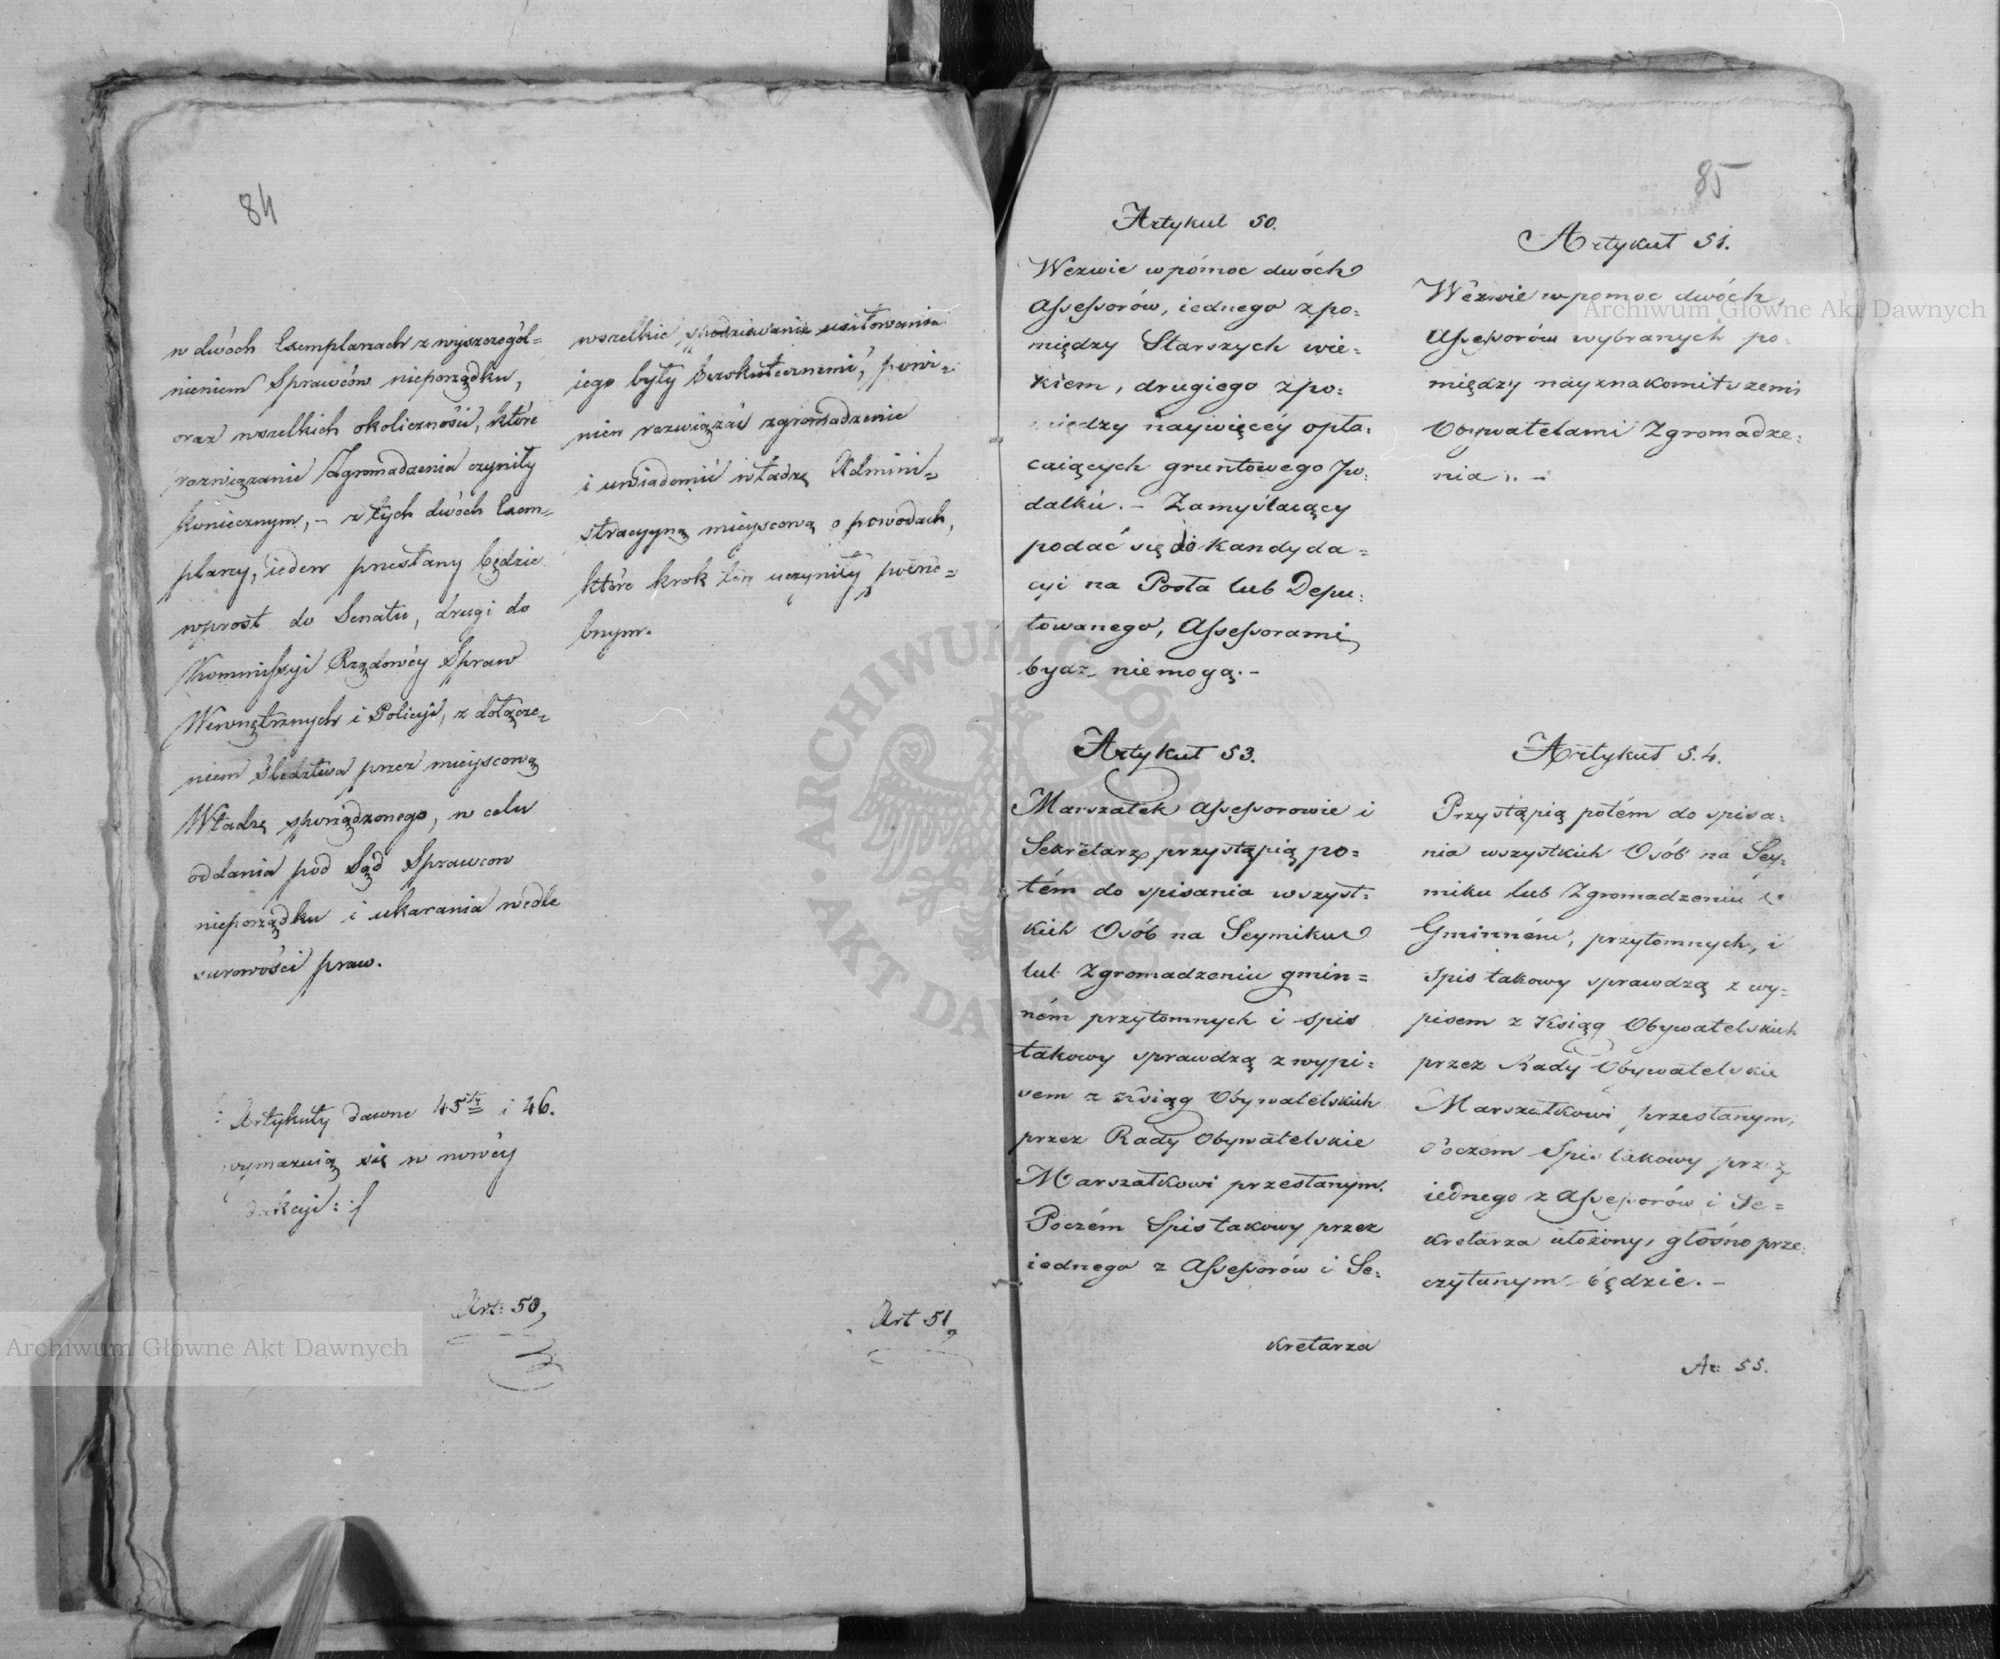 84
w dwóch Exemplarzach z wyszczegól=
nieniem Sprawców nieporządku,
oraz wszelkich okoliczności, które
rozwiązanie Zgromadzenia czyniły
koniecznym, - z tych dwóch Exem=
plarzy, ieden przesłany będzie
wprost do Senatu, drugi do
Kommissyi Rządowéy Spraw
Wewnętrznych i Policyi, z dołącze=
niem śledztwa przez mieyscową
Władzę sporządzonego, w celu
oddania pod Sąd Sprawców
nieporządku i ukarania wedle
surowości praw.
Artykuły dawne 45ty i 46.
wymazuią się w nowéy
dakcyi :/
Art: 50,
wszelkie usiłowania
iego były bezskutecznemi, powi=
nien rozwiązać zgromadzenie
i uwiadomić władzę Admini=
stracyyną mieyscową o powodach,
które krok ten uczyniły potrze=
bnym.
Art 51
85
Artykuł 50.
Wezwie w pómoc dwóch
Assessorów, iednego z po=
między Starszych wie=
kiem, drugiego z po=
między naywięcéy opła=
caiących gruntowego Po=
datku. - Zamyślaiący
podać się do kandyda=
cyi na Posła lub Depu=
towanego, Assessorami
bydz niemogą. -
Artykuł 53.
Marszałek Assessorowie i
Sekretarz przystąpią po=
tém do spisania wszyst=
kich Osób na Seymiku
lub Zgromadzeniu gmin=
ném przytomnych i spis
takowy sprawdzą z wypi=
sem z Xiąg Obywatelskich
przez Rady Obywatelskie
Marszałkowi przesłanym.
Poczém Spis takowy przez
iednego z Assessorów i Se=
kretarza
Artykuł 51.
Wezwie w pomoc dwóch
Assessorów wybranych po=
między nayznakomitszemi
Obywatelami Zgromadze=
nia. -
Artykuł 54.
Przystąpią potém do spisa=
nia wszystkich Osób na Sey=
miku lub Zgromadzeniu
Gminném, przytomnych, i
spis takowy sprawdzą z wy=
pisem z Xiąg Obywatelskich
przez Rady Obywatelskie
Marszałkowi przesłanym,
Poczem Spis takowy przez
iednego z Assessorów i Se=
kretarza ułożony, głośno prze=
czytanym będzie. -
Ar: 55.
Archiwum Główne Akt Dawnych
Archiwum Główne Akt Dawnych
ARCHIWUM GŁÓWNE AKT DAWNYCH